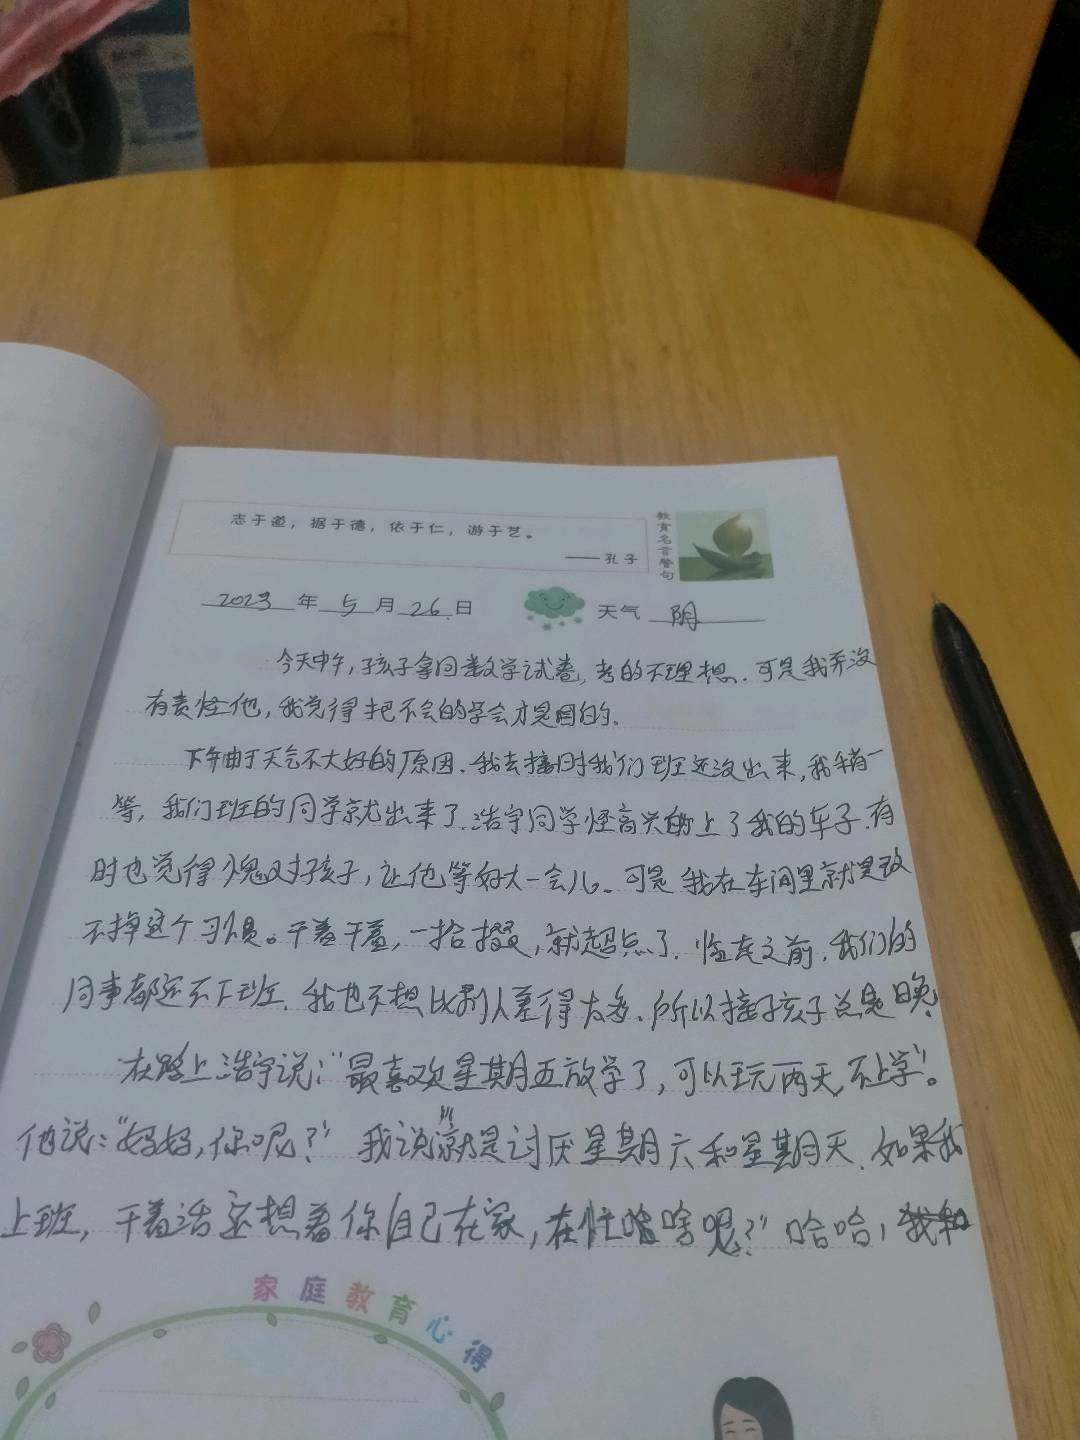 志于道，据于德，依于仁，游于艺。
——孔子
教育名言警句
2023 年 5 月 26 日 天气 阴
今天中午，孩子拿回数学试卷，考的不理想。可是我并没
有责怪他，我觉得把不会的学会才是目的。
下午由于天气不大好的原因。我去接时我们班还没出来，我稍一
等，我们班的同学就出来了。浩宇同学怪高兴的上了我的车子。有
时也觉得愧对孩子，让他等好大一会儿。可是我在车间里就是改
不掉这个习惯。干着干着，一拾掇，就超点了。临走之前，我们的
同事都还不下班。我也不想比别人差得太多。所以接孩子总是晚。
在路上浩宇说："最喜欢星期五放学了，可以玩两天，不上学"。
他说："妈妈，你呢？" 我说"就是讨厌星期六和星期天。如果我
上班，干着活还想着你自己在家，在忙啥呢？" 哈哈，
家庭教育心得